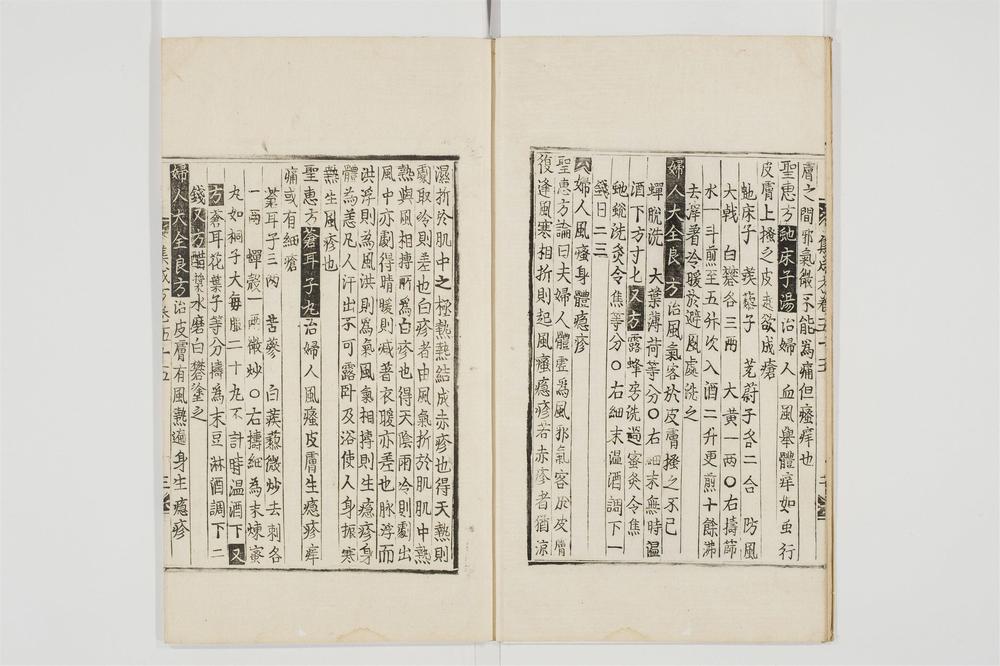 膚之間邪氣微不能為痛但癢痒也
聖惠方虵床子湯治婦人血風舉體痒如虫行
皮膚上搔之皮起欲成瘡
虵床子 蒺蔾子 茺蔚子各二合 防風
大戟 白礬各三兩 大黃一兩〇右擣篩
水一斗煎至五升次入酒二升更煎十餘沸
去滓著冷暖於避風處洗之
婦人大全良方治風氣客於皮膚搔之不已
蟬脫洗 大葉薄荷等分〇右細末無時溫
酒下方寸匕又方露蜂房洗過蜜灸令焦
虵蛻洗灸令焦等分〇右細末溫酒調下一
錢日二三
婦人風瘙身體癮疹
聖惠方論曰夫婦人體虛為風邪氣客於皮膚
復逢風寒相折則起風瘙癮疹若赤疹者猶凉
濕折於肌中之極熱熱結成赤疹也得天熱則
劇取冷則差也白疹者由風氣折於肌肌中熱
熱與風相搏所為白疹也得天陰雨冷則劇出
風中亦劇得晴暖則减著衣暖亦差也脉浮而
洪浮則為風洪則為氣風氣相搏則生癮疹身
體為恙凡人汗出不可露卧及浴使人身振寒
熱生風疹也
聖惠方蒼耳子丸治婦人風瘙皮膚生癮疹痒
痛或有細瘡
葉耳子三兩 苦參 白蒺蔾微炒去刺各
一兩 蟬殼一兩微炒〇右擣細為末煉蜜
丸如桐子大每服二十丸不計時温酒下又
方蒼耳花葉子等分擣為末豆淋酒調下二
錢又方醋漿水磨白礬塗之
婦人大全良方治皮膚有風熱遍身生癮疹